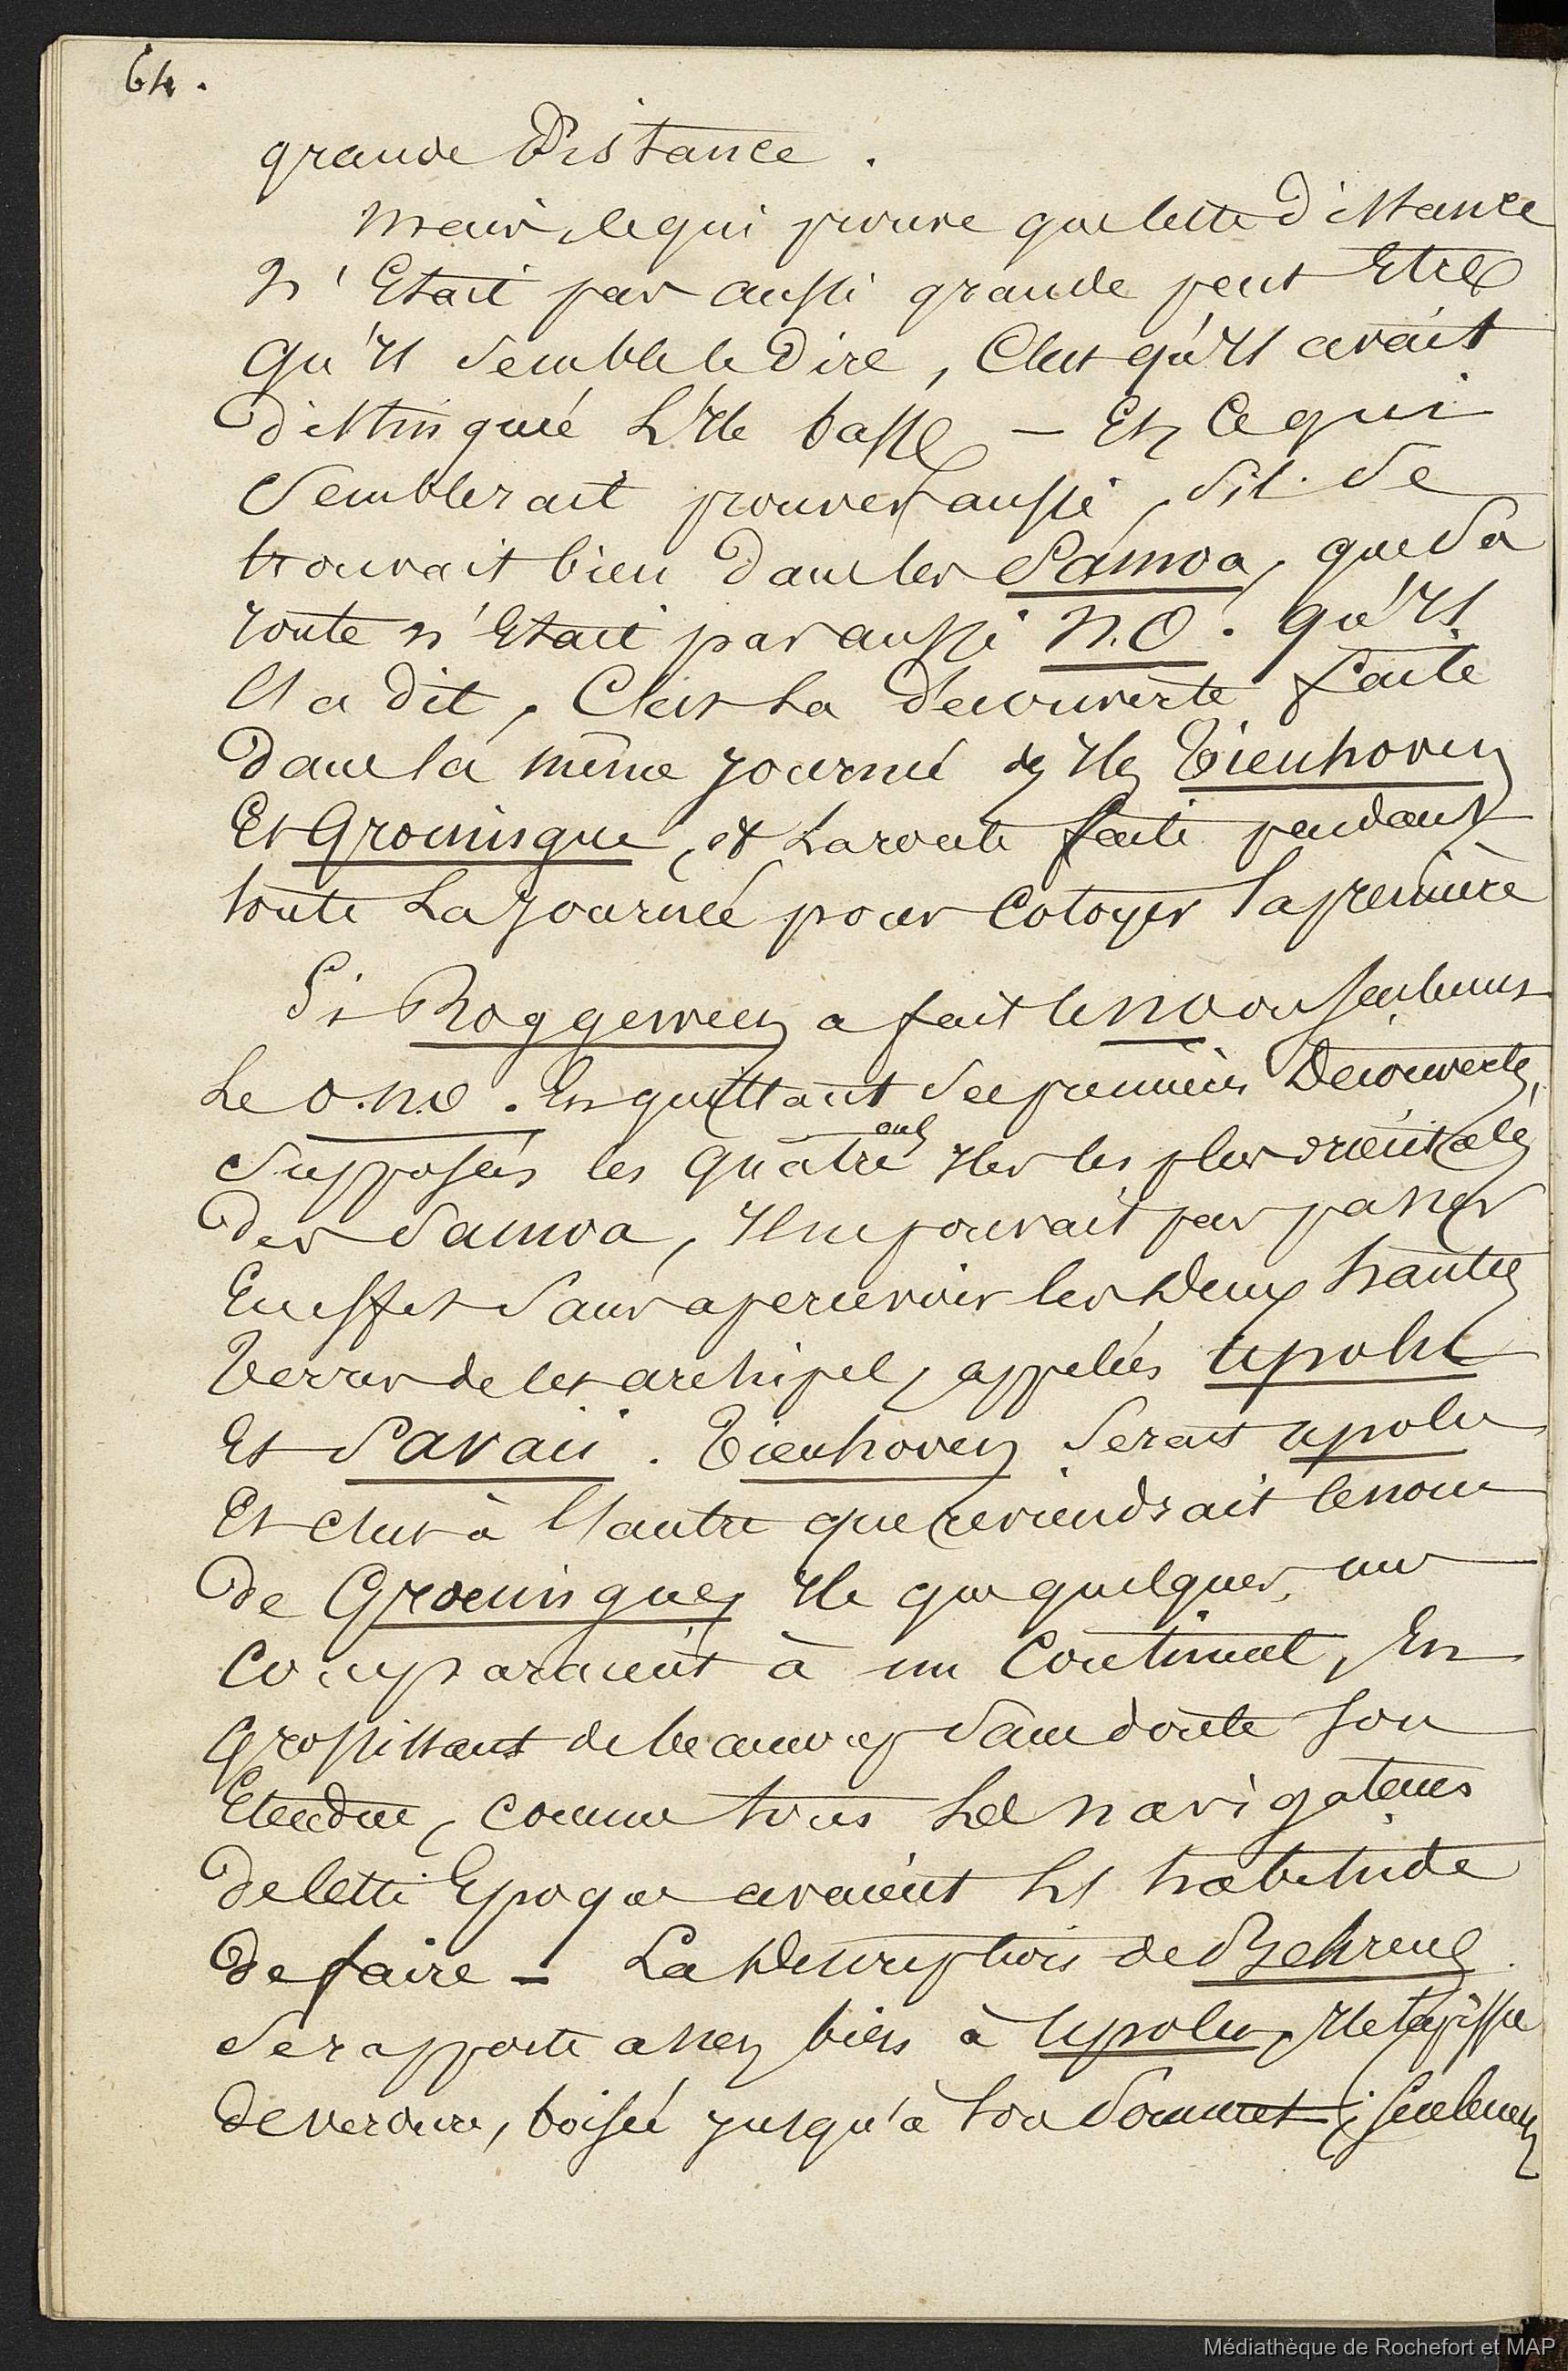 64.
grande Distance.
Mais, ce qui prouve que cette distance
N'Etait pas aussi grande peut Etre
qu'Il semble le Dire, C'est qu'Il avait
distingué L'Ile basse – Et Ce qui
Semblerait prouver aussi, s'il se
trouvait bien dans les Samoa, que Sa
route n'Etait pas aussi N.O. qu'Il
l'a dit, C'est La Découverte faite
dans la même journée des Iles Tienhoven
Et Groningue, & La route faite pendant
toute La journée pour Cotoyer la première
Si Roggeween a fait le NO ou seulement
Le O.N.O. En quittant ses premières Découvertes,
Supposées les quatre aux Iles les plus orientales
des Samoa, Il ne pouvait pas passer
En effet Sans apercevoir les Deux hautes
Terres de cet archipel, appelées Upolu
Et Savaii. Tienhoven serait Upolu
Et c'est à l'autre que reviendrait le nom
de Groeningue, Ile que quelques uns
Comparaient à un Continent, En
Grossissant de beaucoup Sans doute son
Etendue, comme tous Les navigateurs
de cette Epoque avaient L'habitude
de faire – La Description de Behrens
Se rapporte assez bien à Upolu, Ile tapissée
de verdure, boisée jusqu'à son Sommet ; seulement
Médiathèque de Rochefort et MAP